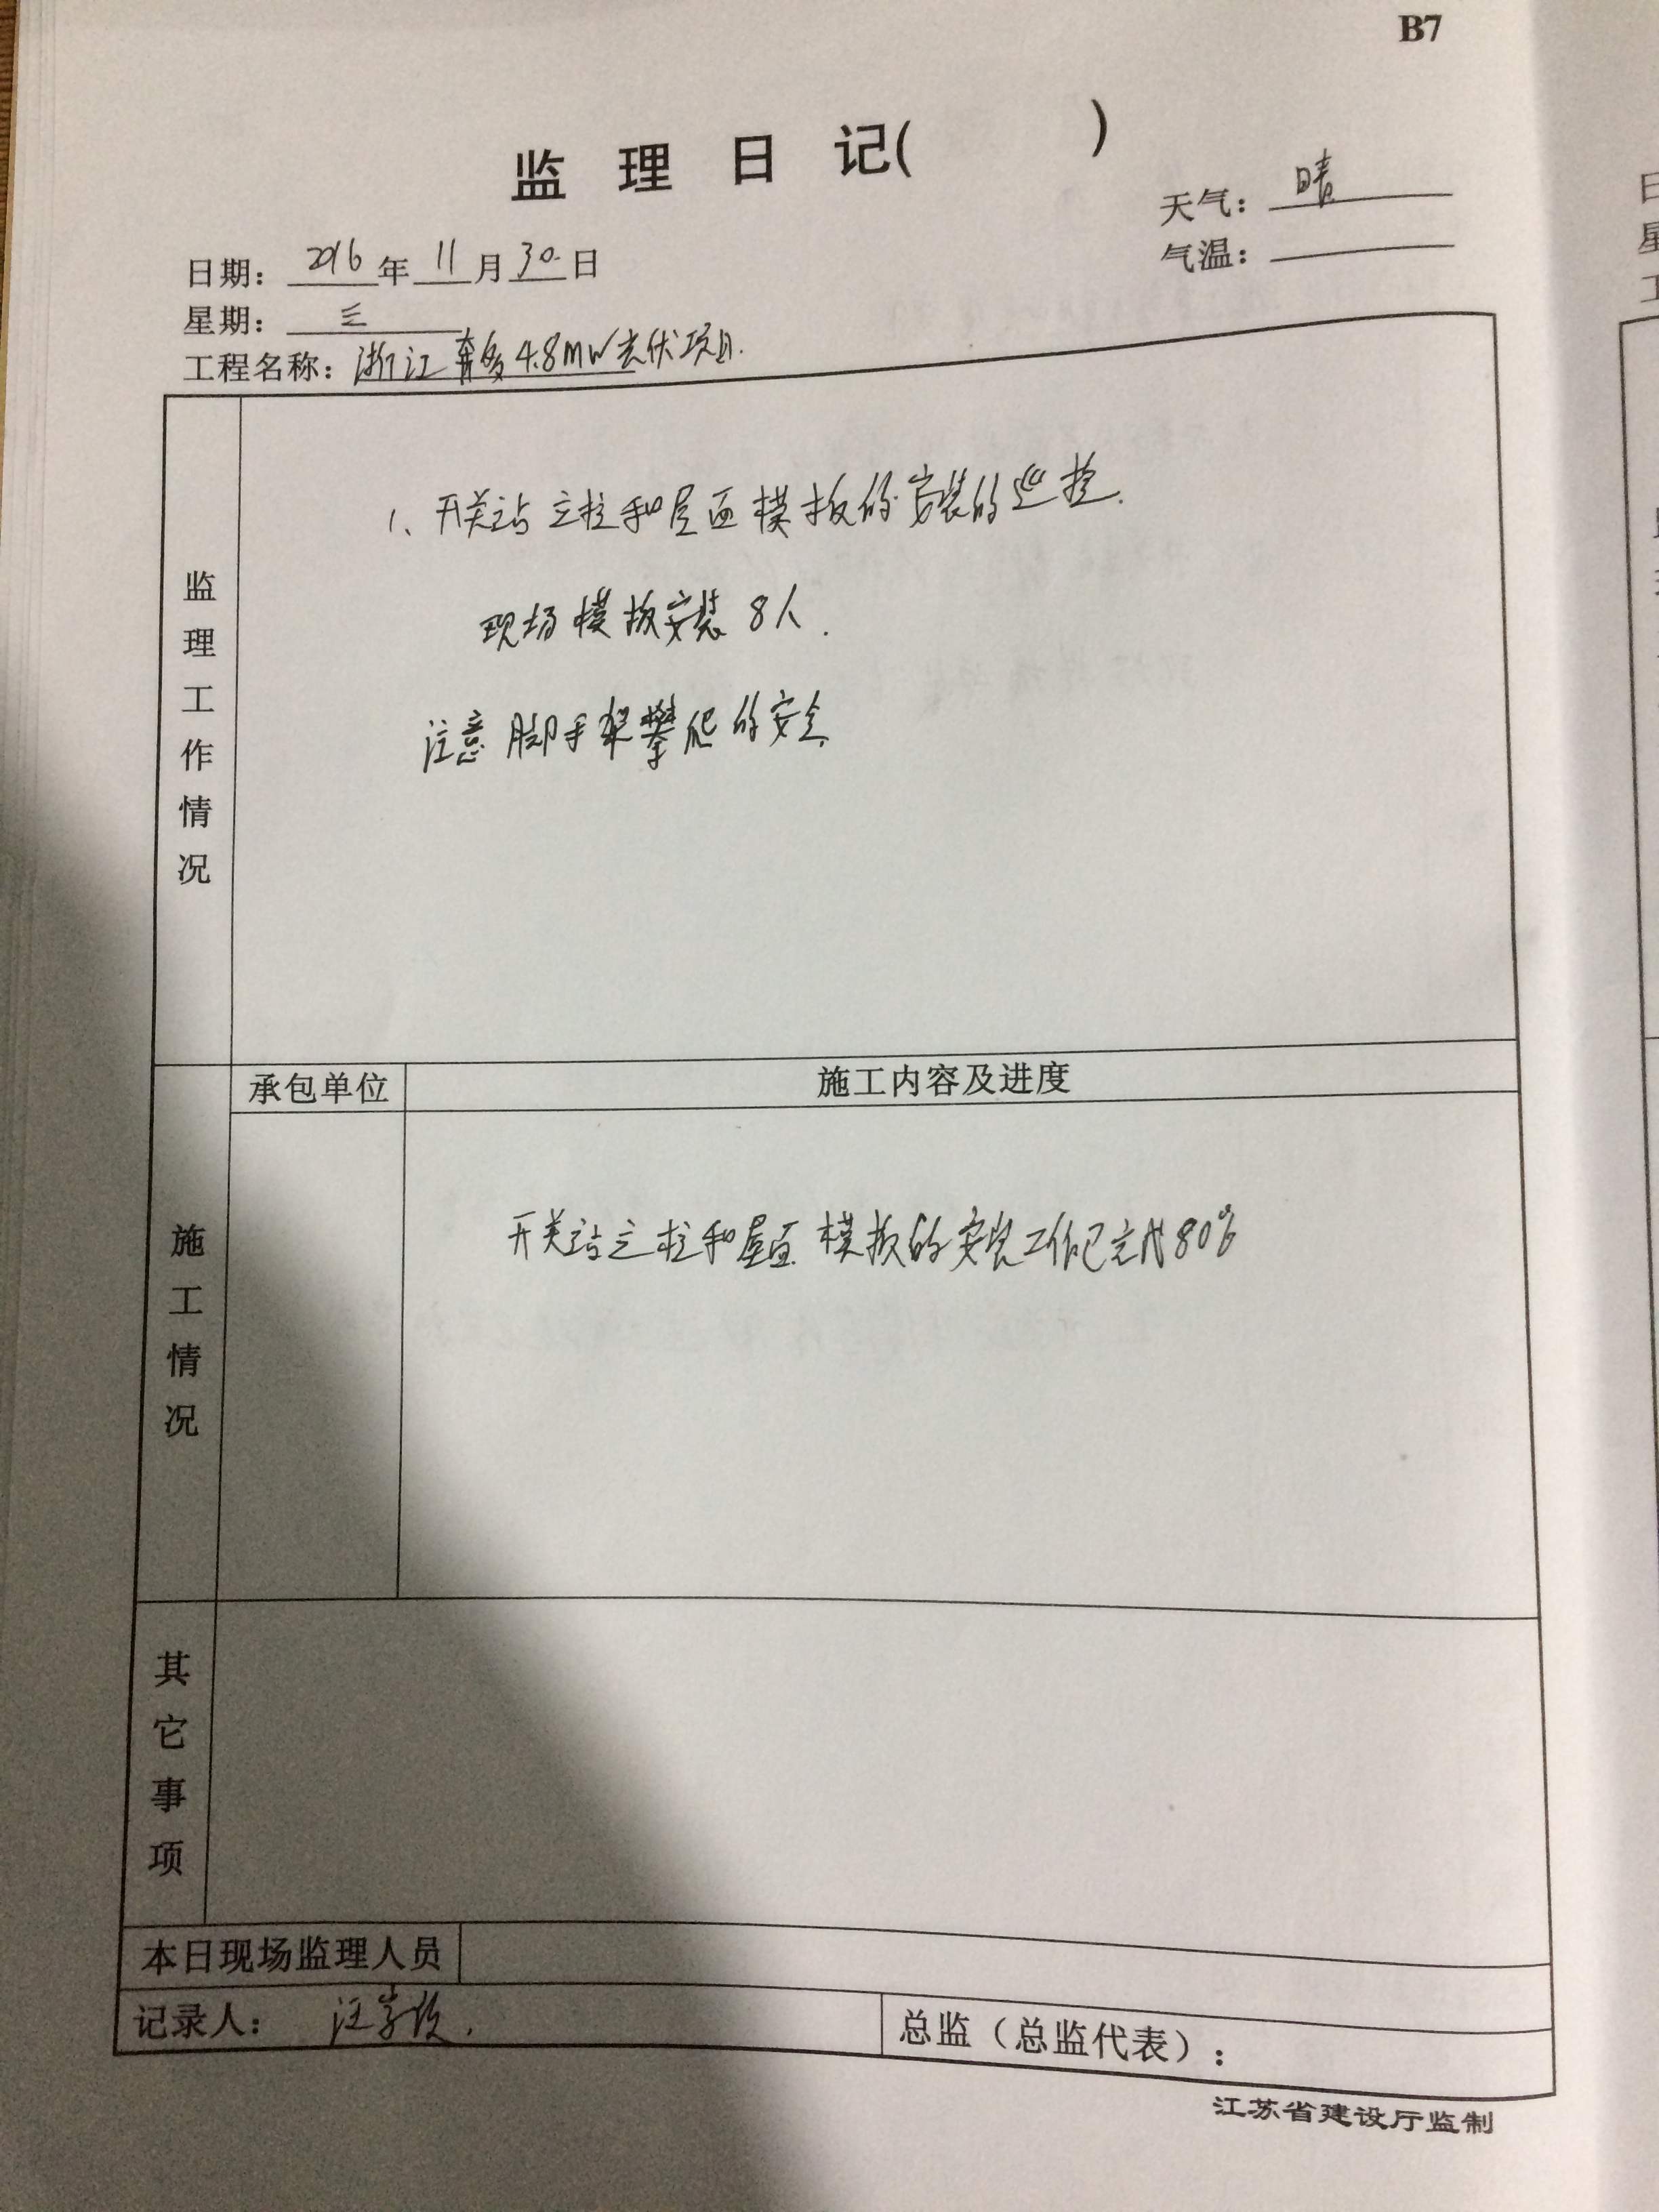 B7
监理日记( )
天气：晴
气温：
日期：2016年11月30日
星期：三
工程名称：浙江奔多4.8MW光伏项目.
监理工作情况
1、开关站立柱和屋面模板的安装的巡检.
现场模板安装8人.
注意脚手架攀爬的安全
承包单位 施工内容及进度
施工情况
开关站立柱和屋面模板的安装工作已完成80%
其它事项
本日现场监理人员
记录人：汪
总监（总监代表）：
江苏省建设厅监制